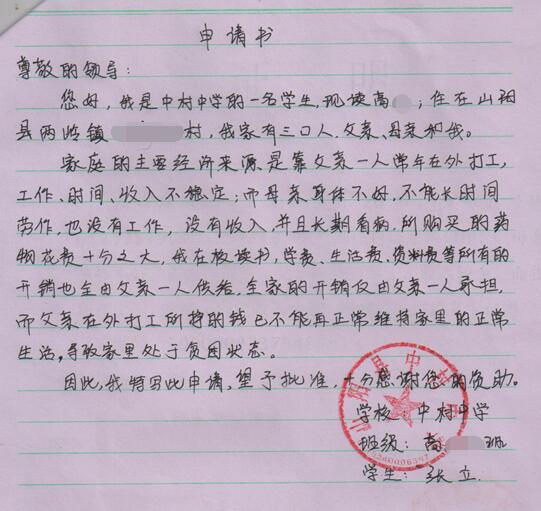 申请书
尊敬的领导:
您好,我是中村中学的一名学生,现读高;住在山阳
县两岭镇村,我家有三口人,父亲、母亲和我。
家庭的主要经济来源是靠父亲一人常年在外打工,
工作、时间、收入不稳定;而母亲身体不好,不能长时间
劳作,也没有工作,没有收入,并且长期看病,所购买的药
物花费十分之大,我在校读书,学费、生活费、资料费等所有的
开销也全由父亲一人供给,全家的开销仅由父亲一人承担,
而父亲在外打工所挣的钱已不能再正常维持家里的正常
生活,导致家里处于贫困状态。
因此,我特写此申请,望予批准,十分感谢您的资助。
学校:中村中学
班级:高班
学生:张立.
山阳县中村中学